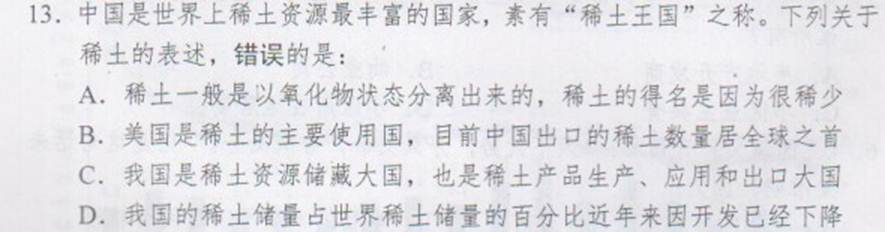 13. 中国是世界上稀土资源最丰富的国家，素有“稀土王国”之称。下列关于
稀土的表述，错误的是：
A. 稀土一般是以氧化物状态分离出来的，稀土的得名是因为很稀少
B. 美国是稀土的主要使用国，目前中国出口的稀土数量居全球之首
C. 我国是稀土资源储藏大国，也是稀土产品生产、应用和出口大国
D. 我国的稀土储量占世界稀土储量的百分比近年来因开发已经下降